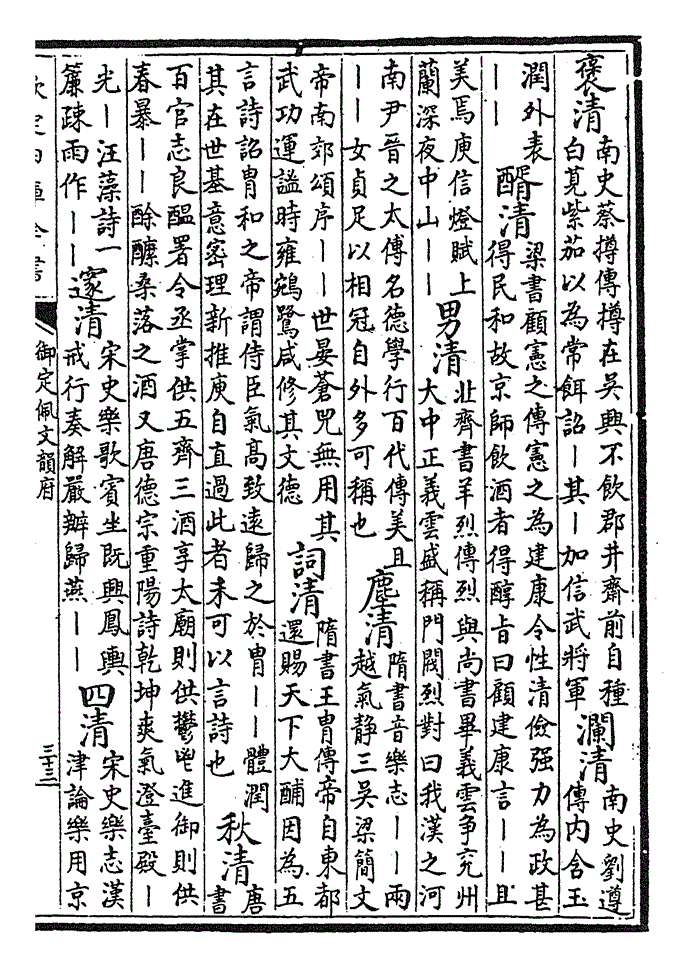 褒清 南史蔡撙傳撙在吳興不飲郡井齋前自種
白莧紫茄以為常餌詔—其—加信武將軍
瀾清 南史劉遵
傳内含玉
潤外表
——
醑清 梁書顧憲之傳憲之為建康令性清儉强力為政甚
得民和故京師飲酒者得醇旨曰顧建康言——且
美焉庾信燈賦上
蘭深夜中山——
男清 北齊書羊烈傳烈與尚書畢義雲争兖州
大中正義雲盛稱門閥烈對曰我漢之河
南尹晉之太傅名德學行百代傳美且
——女貞足以相冠自外多可稱也
塵清 隋書音樂志——兩
越氣静三吳梁簡文
帝南郊頌序——世晏蒼兕無用其
武功運謐時雍鵷鷺咸修其文德
詞清 隋書王胄傳帝自東都
還賜天下大酺因為五
言詩詔胄和之帝謂侍臣氣高致遠歸之於胄——體潤
其在世基意密理新推庾自直過此者未可以言詩也
秋清 唐
書
百官志良醖署令丞掌供五齊三酒享太廟則供鬱鬯進御則供
春暴——酴醿桑落之酒又唐德宗重陽詩乾坤爽氣澄臺殿—
光—汪藻詩一
簾疎雨作——
邃清 宋史樂歌賓坐既興鳳輿
戒行奏解嚴辦歸燕——
四清 宋史樂志漢
津論樂用京
欽定四庫全書
御定佩文韻府
三十三